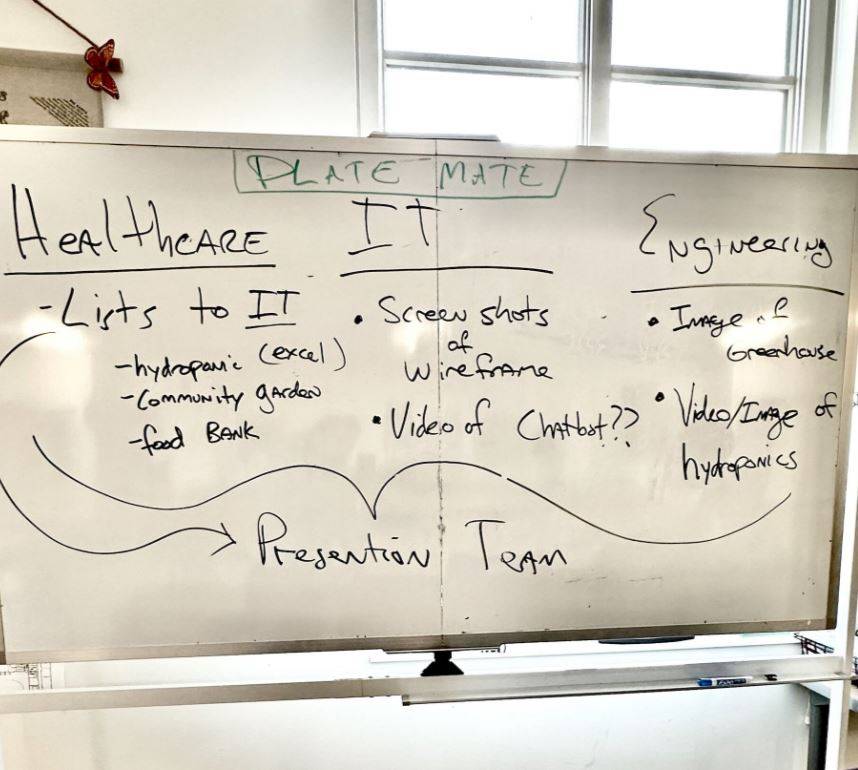 PLATE MATE
HealthcARE
- Lists to IT
- hydroponic (excel)
- Community garden
- food BANK
IT
• Screen shots
of
Wireframe
• Video of Chatbot??
Engineering
• Image of
Greenhouse
• Video/Image of
hydroponics
Presention Team